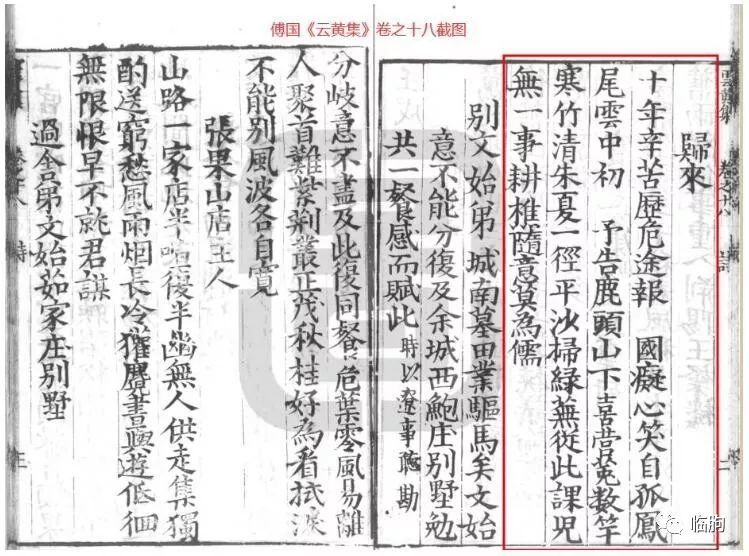 傅国《云黄集》卷之十八截图
雲黃集 卷之十八 詩 二
歸來
十年辛苦歷危途報 國癡心笑自孤鳳
尾雲中初 予告鹿頭山下喜營菟數竿
寒竹清朱夏一徑平沙掃綠蕪從此課兒
無一事耕樵隨意筭為儒
別文始弟 城南墓田業驅馬矣文始
意不能分復及余城西鮑庄別墅勉
共一餐感而賦此 時以遼事聽勘
分岐意不盡及此復同餐危葉零風易離
人聚首難紫荆叢正茂秋桂好為看拭淚
不能別風波各自寬
張果山店主人
山路一家店半喧後半幽無人供走集獨
酌送窮愁風雨烟長冷獾麕晝與遊低徊
無限恨早不就君謀
過舍弟文始茹家庄別墅
临朐